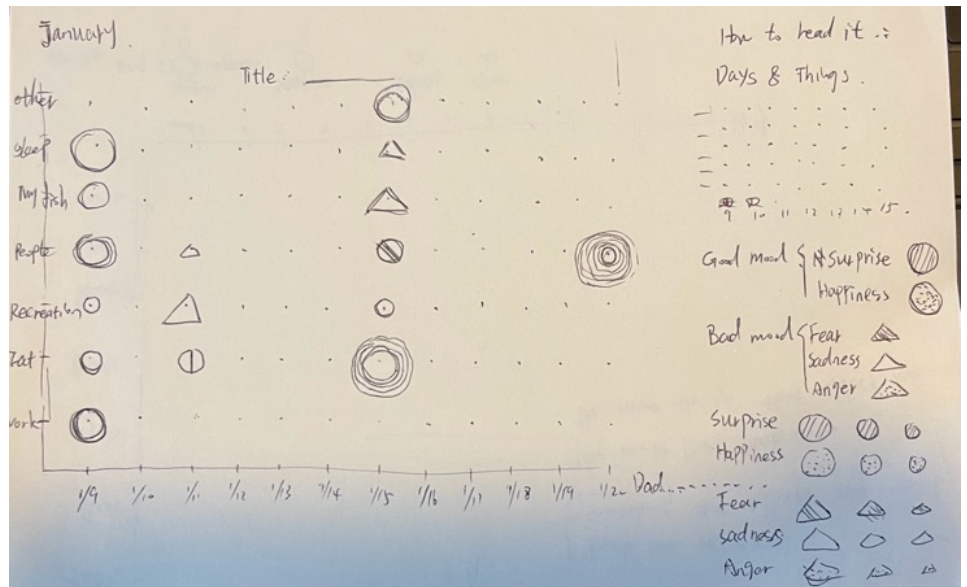 January.
Title: ________
other
sleep
My fish
People
Recreation
Eat
work
1/9 1/10 1/11 1/12 1/13 1/14 1/15 1/16 1/17 1/18 1/19 1/20
How to read it :
Days & Things.
9 10 11 12 13 14 15.
Good mood { Surprise
Happiness
Bad mood { Fear
Sadness
Anger
Surprise
Happiness
Fear
sadness
Anger